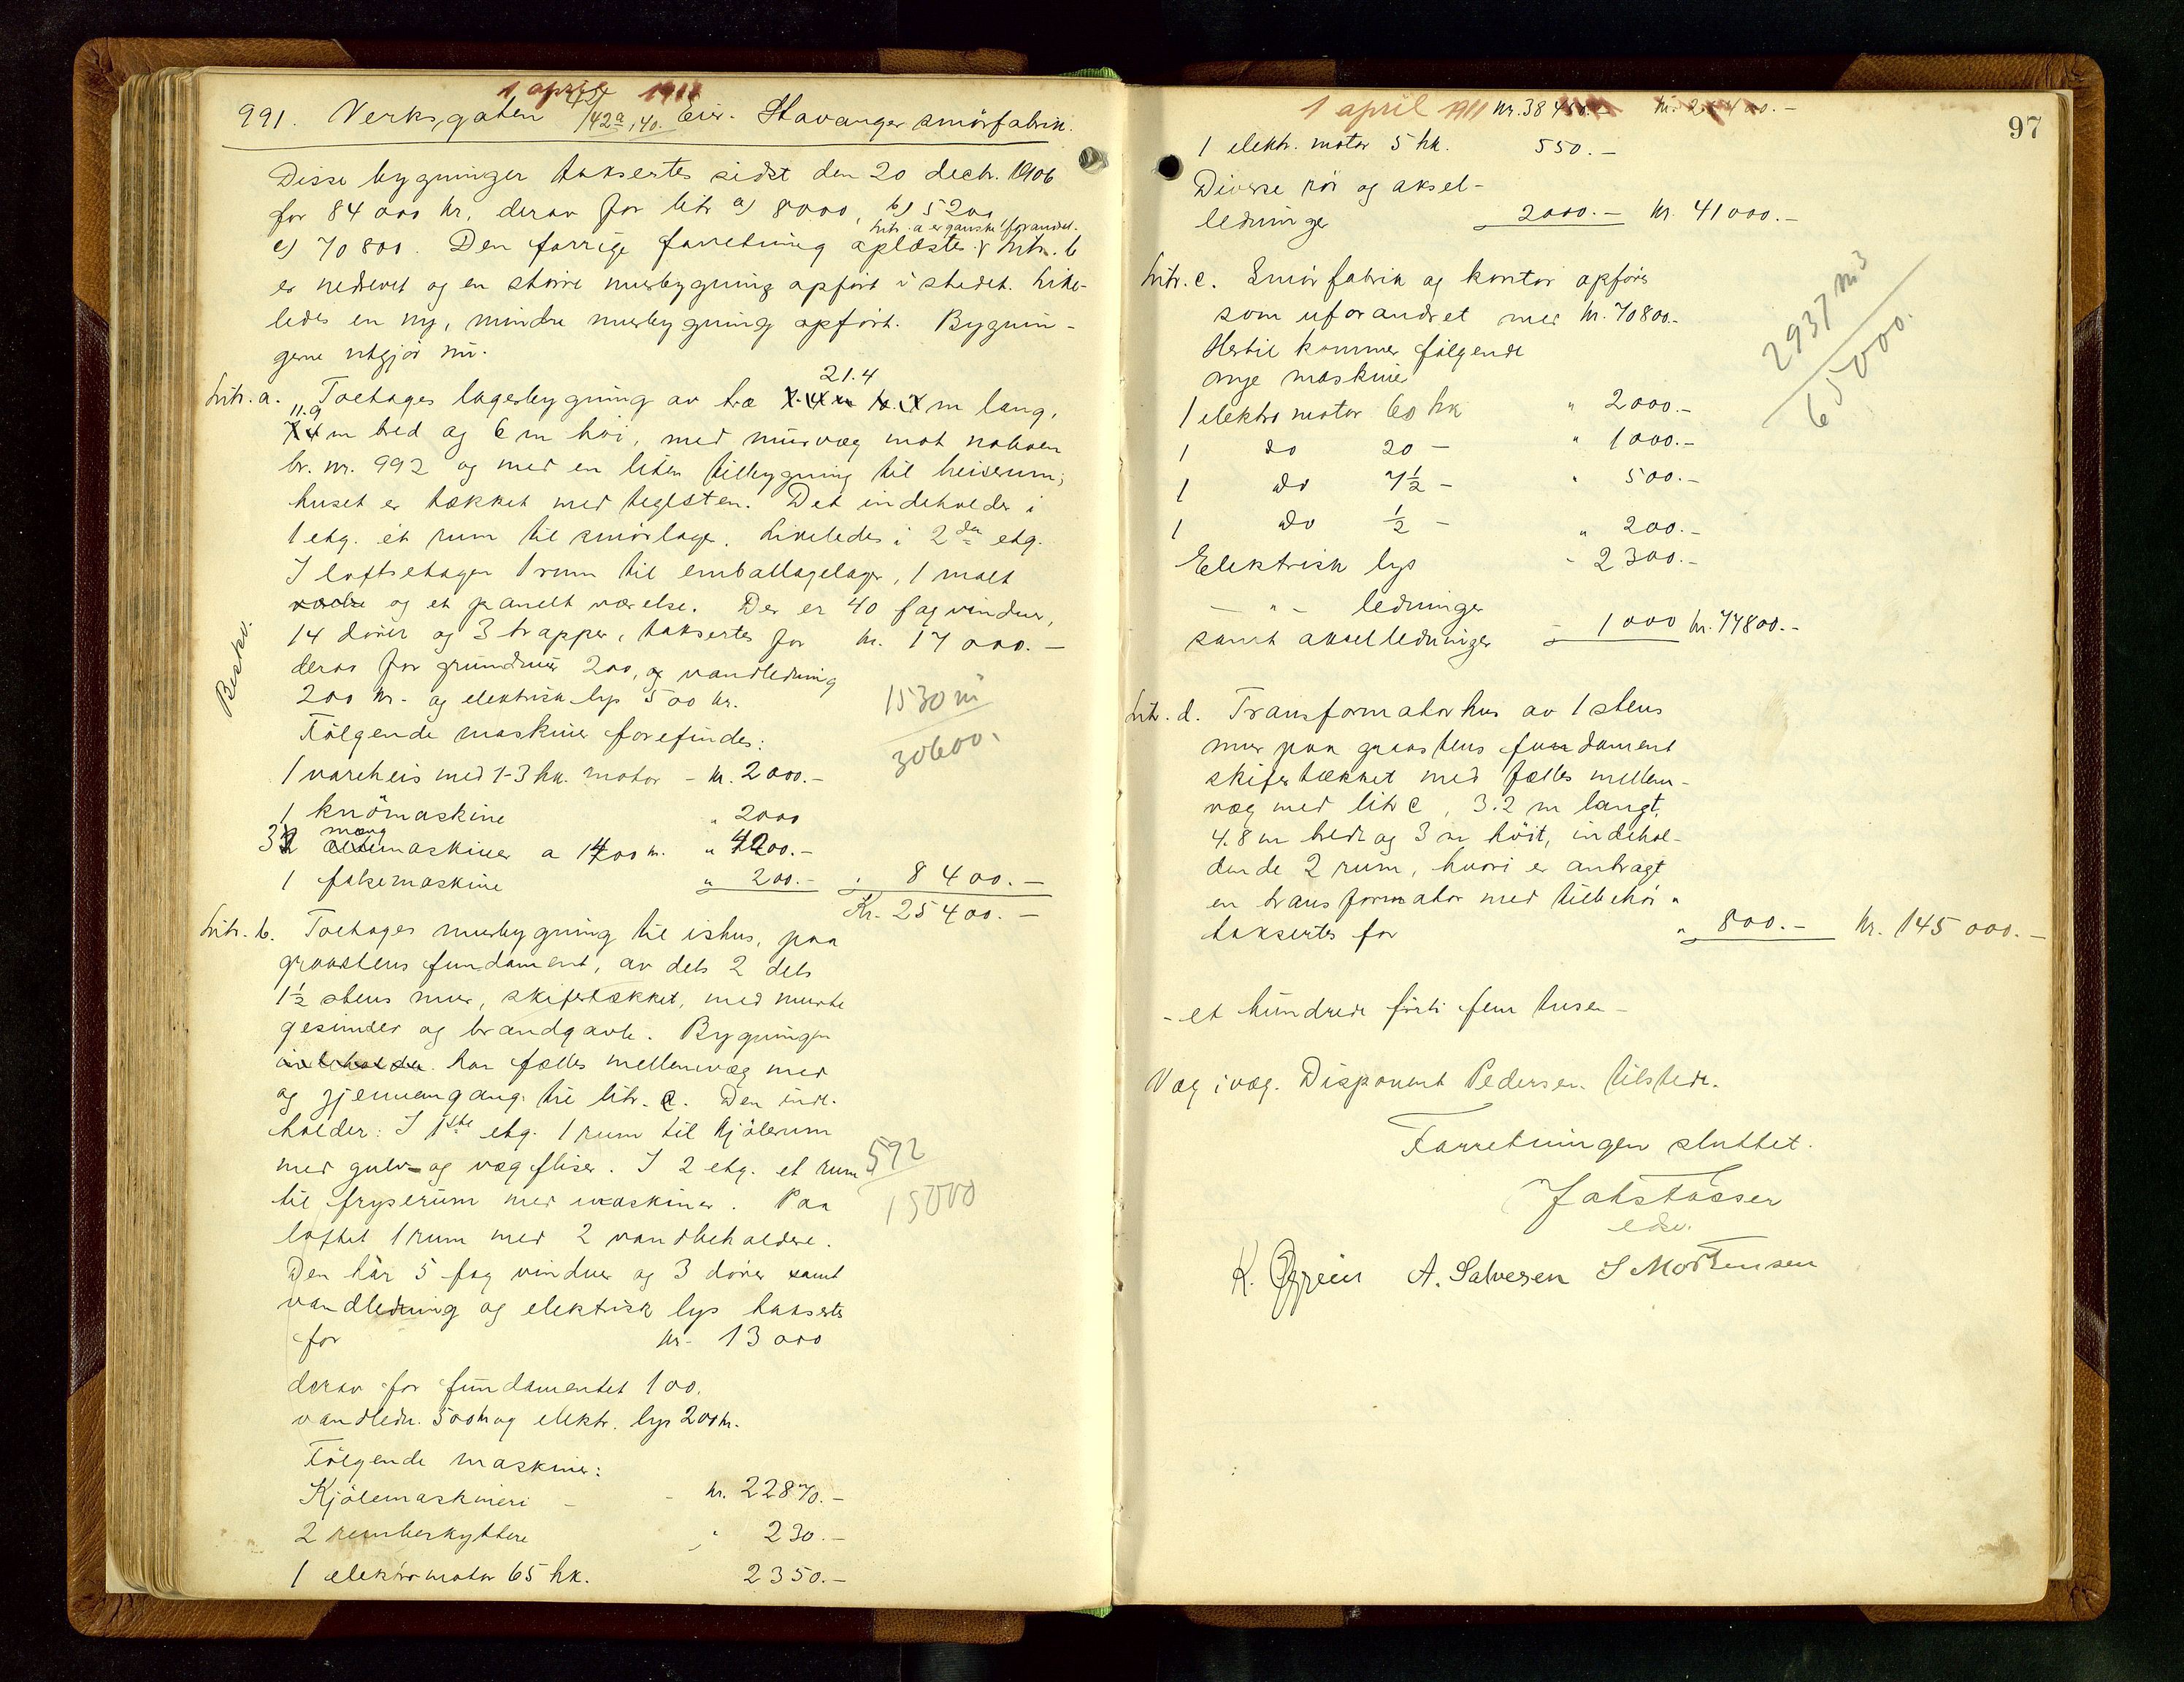 1 april 1911
991. Verksgaten 42/42a, 40. Eier. Stavanger smörfabrik.
Disse bygninger taksertes sidst den 20 decbr. 1906
for 84 000 kr, derav for litr a) 8000, b) 5200
Litr. a er ganske forandret.
c) 70800. Den forrige forretning oplæstes. Litr. b
er nedrevet og en större murbygning opfört i stedet. Like-
ledes en ny, mindre murbygning opfört. Bygnin-
gerne utgjör nu.
21.4
Litr. a. Toetages lagerbygning av træ m lang,
11.9
m bred og 6 m höi, med murvæg mot naboen
br. nr. 992 og med en liten tilbygning til heiserum;
huset er tækket med teglsten. Det indeholder i
1 etg. et rum til smörlager. Likeledes i 2den etg.
I loftsetagen 1 rum til emballagelager, 1 malt
værelse og et panelt værelse. Der er 40 fag vinduer,
14 dörer og 3 trapper, taksertes for kr. 17 000.-
derav for grundmur 200, og vandledning
200 kr. og elektrisk lys 500 kr.
Beskr.
1530 m
30600.
Fölgende maskiner forefindes:
1 vareheis med 1-3 hk. motor - kr. 2000.-
1 knömaskine " 2000
mæng
3 maskiner a 1400 kr. " 4200.-
1 fakemaskine " 200.- " 8400.-
Kr. 25400.-
Litr. b. Toetages murbygning til ishus, paa
graastens fundament, av dels 2 dels
1½ stens mur, skifertækket, med murte
gesimser og brandgavle. Bygningen
indeholder har fælles mellemvæg med
og gjennemgang til litr. c. Den inde-
holder: I 1ste etg. 1 rum til kjölerum
med gulv- og vægfliser. I 2 etg. et rum
592
15000
til fryserum med maskiner. Paa
loftet 1 rum med 2 vandbeholdere.
Den har 5 fag vinduer og 3 dörer samt
vandledning og elektrisk lys taksertes
for kr. 13 000
derav for fundamentet 100,
vandledn. 500 kr og elektr. lys 200 kr.
Fölgende maskiner:
Kjölemaskineri - - kr. 22870.-
2 rembeskyttere " 230.-
1 elektromotor 65 hk. 2350.-
97
1 april 1911 kr. 38450.-
1 elektr. motor 5 hk. 550.-
Diverse rör og aksel-
ledninger 2000.- kr. 41000.-
Litr. c. Smörfabrik og kontor opföres
som uforandret med kr. 70800.-
Hertil kommer fölgende
nye maskiner
2937 m3
65000.
1 elektro motor 60 hk " 2000.-
1 do 20 - " 1000.-
1 do 7½ - " 500.-
1 do ½ - " 200.-
Elektrisk lys - 2300.-
- " - ledninger
samt akselledninger - 1000 kr. 77800.-
Litr. d. Transformatorhus av 1 stens
mur paa graastens fundament
skifertækket med fælles mellem-
væg med litr c, 3.2 m langt,
4.8 m bredt og 3 m höit, indehol-
dende 2 rum, hvori er anbragt
en transformator med tilbehör "
taksertes for " 800.- kr. 145 000.-
- et hundrede förti fem tusen -
Væg i væg. Disponent Pedersen tilstede.
Forretningen sluttet.
edsv.
A. Salvesen S Mortensen